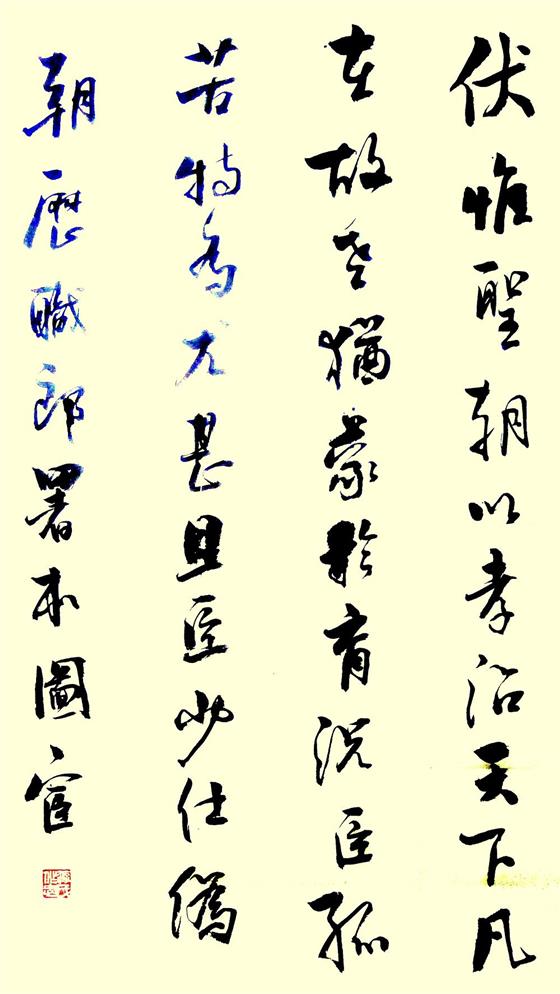 伏惟聖朝以孝治天下凡
在故老猶蒙矜育況臣孤
苦特為尤甚且臣少仕偽
朝歷職郎署本圖宦